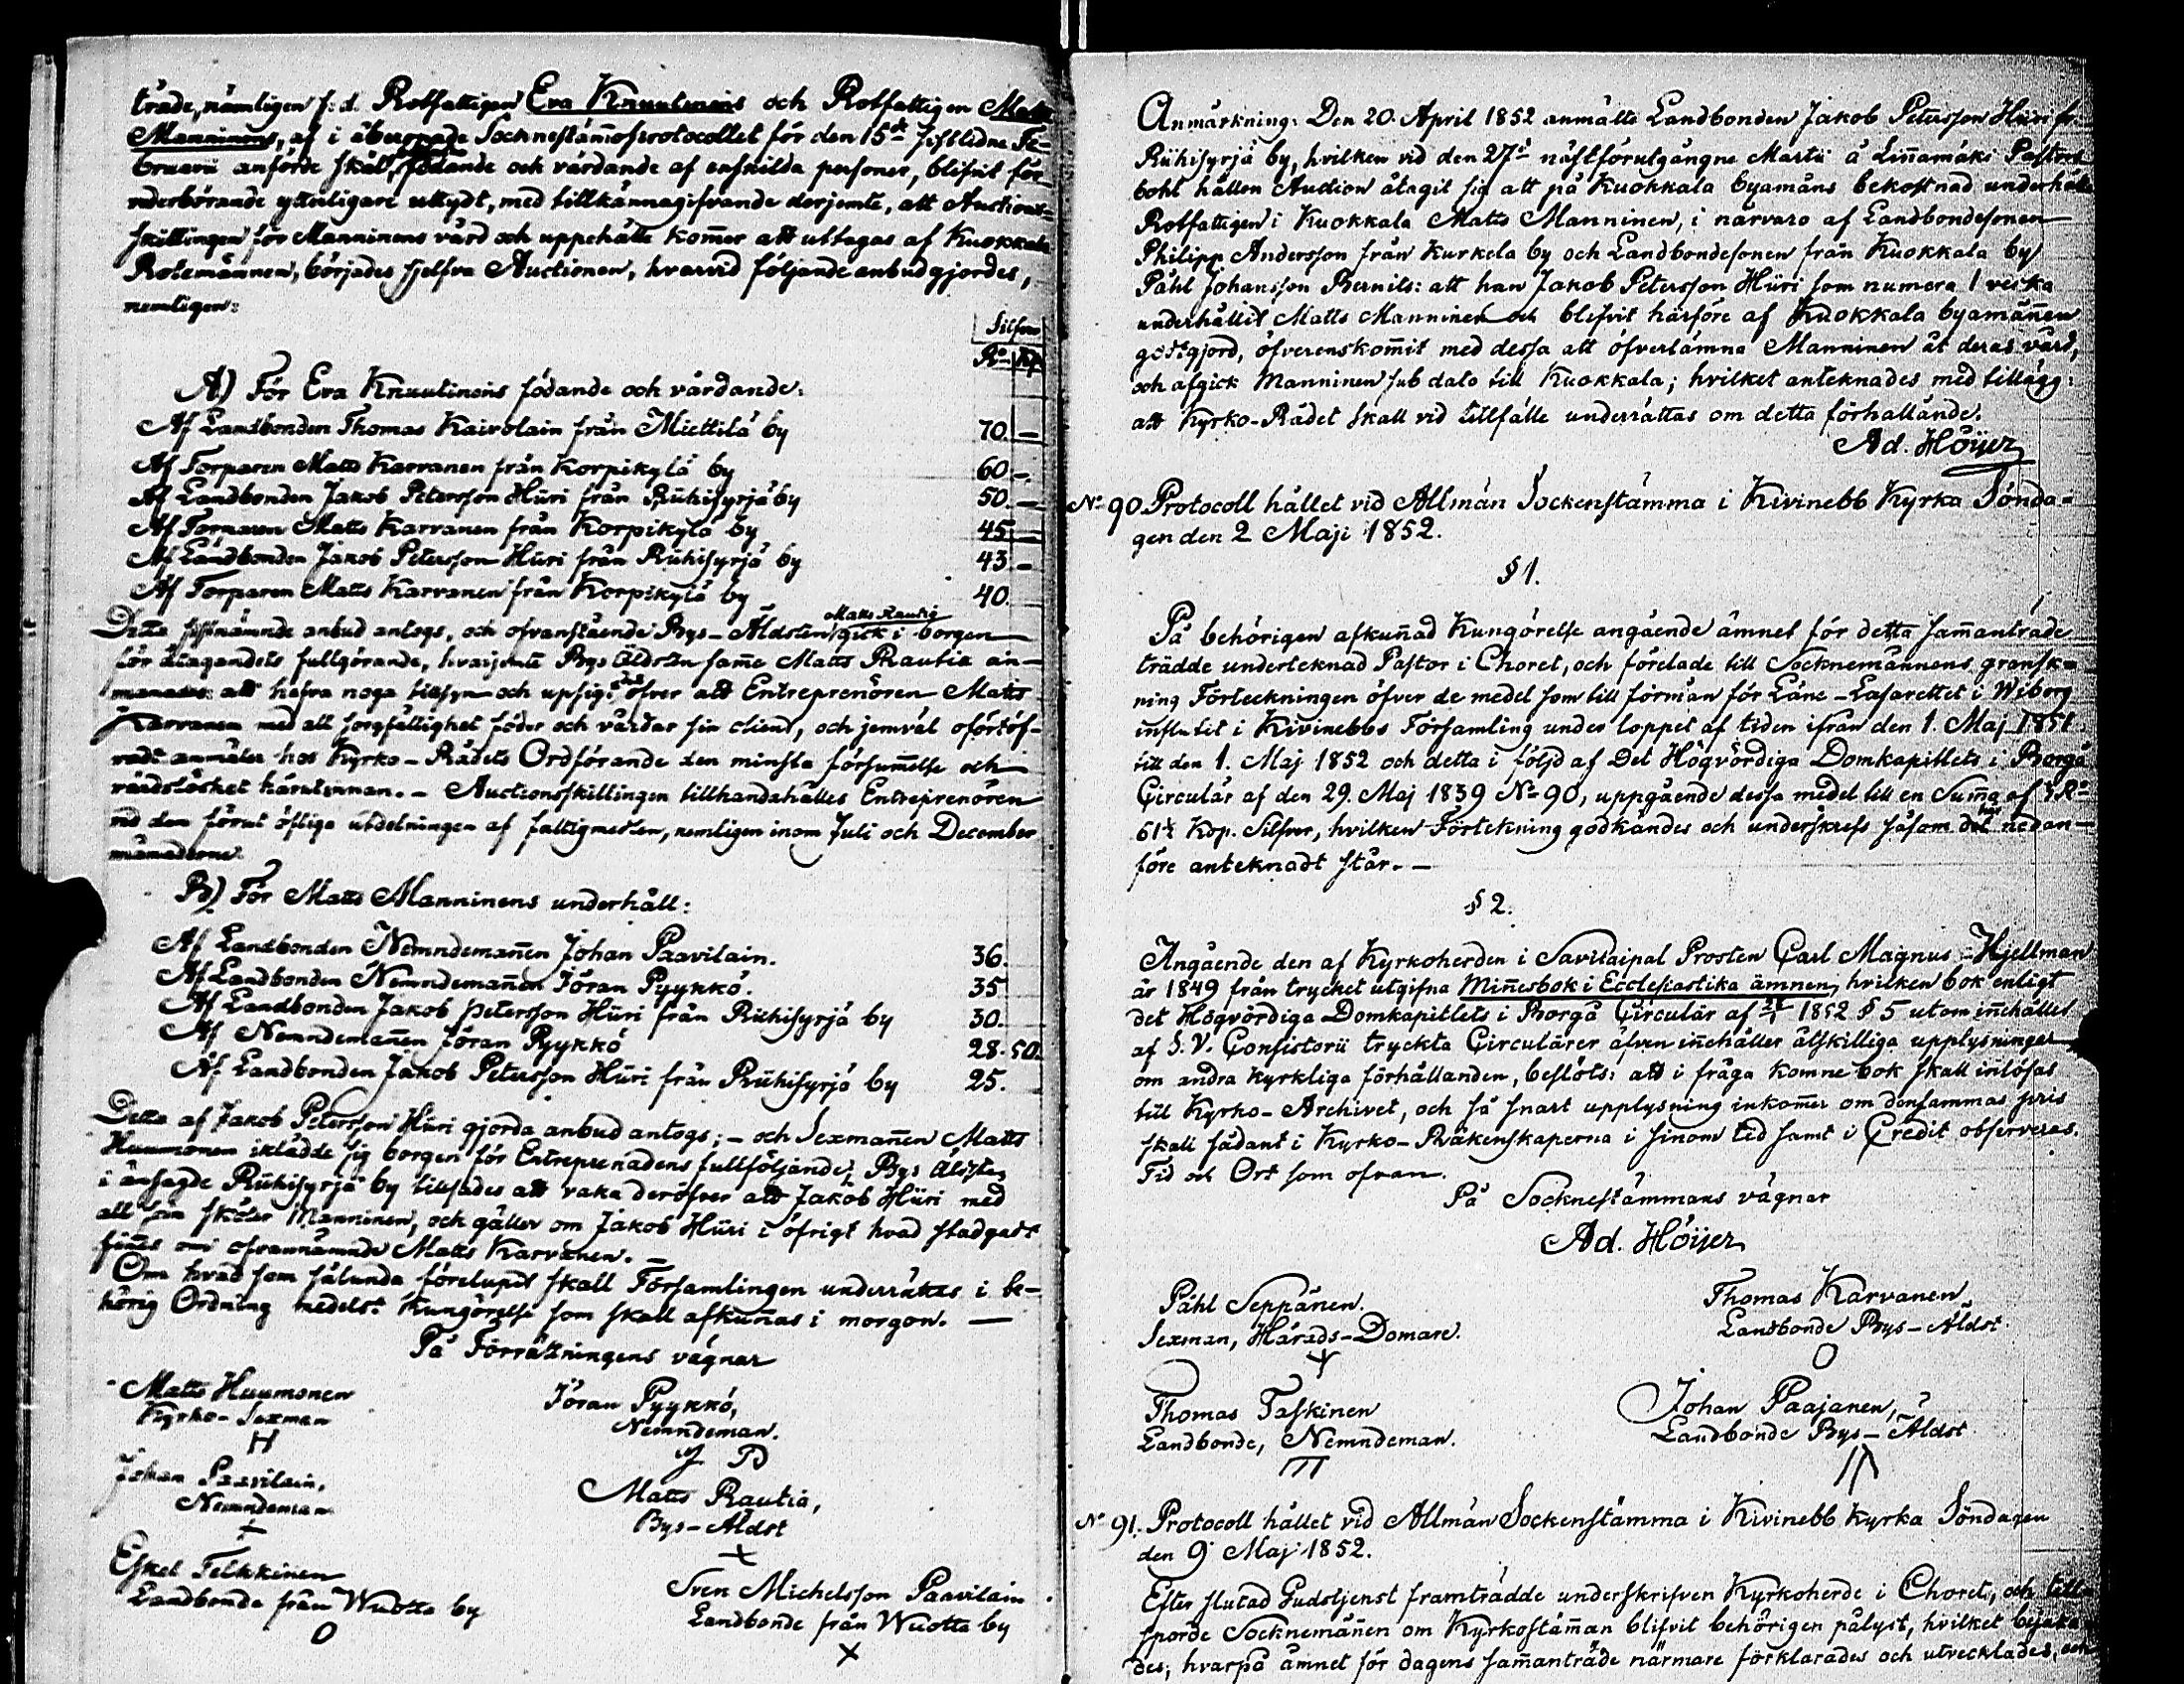 träde, nämligen f: d. Rotfattigen Eva Knuutinens och Rotfattigen Matts
Manninens, af i åberopade Socknestämoprotocollet för den 15de sistlidne Fe-
bruarii anförde skäl, födande och vårdande af enskilda personer, blifvit för
vederbörande ytterligare uttydt, med tillkännagifvande derjemte, att Auctions-
skillingen för Manninens vård och uppehälle komer att uttagas af Kuokkala
Rotemännen, börjades sjelfva Auctionen, hvarvid följande anbud gjordes,
nemligen:
Silfver
Ro Kop
A) För Eva Knuutinens födande och vårdande:
Af Landbonden Thomas Kaivolain från Miettilä by 70. —
Af Torparen Matts Karvanen från Korpikylä by 60. —
Af Landbonden Jakob Petersson Hüri från Riihisyrjä by 50. —
Af Torparen Matts Karvanen från Korpikylä by 45. —
Af Landbonden Jakob Petersson Hüri från Riihisyrjä by 43. —
Af Torparen Matts Karvanen från Korpikylä by 40.
Matts Rautia
Detta sistnämnde anbud antogs, och ofvanstående Bys-Äldsten gick i borgen
för åtagandets fullgörande, hvarjemte Bys Äldsten same Matts Rautia an-
manades: att hafva noga tillsyn och upsigt öfver att Entreprenören Matts
Karvanen med all sorgfällighet föder och vårdar sin client, och jemväl oförtöf-
vadt anmäler hos Kyrko-Rådets Ordförande den minsta försumelse och
vårdslöshet härutinnan. – Auctionsskillingen tillhandahålles Entreprenören
vid den förut öfliga utdelningen af fattigmedlen, nemligen inom Juli och December
månaderne.
B) För Matts Manninens underhåll:
Af Landbonden Nemndemañen Johan Paavilain. 36.
Af Landbonden Nemndemañen Jöran Pyykkö. 35
Af Landbonden Jakob Petersson Hüri från Riihisyrjä by 30.
Af Nemndemañen Jöran Pyykkö 28. 50.
Af Landbonden Jakob Petersson Hüri från Riihisyrjä by 25.
Detta af Jakob Petersson Hüri gjorda anbud antogs; – och Sexmañen Matts
Huumonen iklädde sig borgen för Entreprenadens fullföljande, Bys Äldsten
i ansagde Riihisyrjä by tillsades att vaka deröfver att Jakob Hüri med
all sköter Manninen, och gäller om Jakob Hüri i öfrigt hvad stadgadt
fiñes om ofvannämnde Matts Karvanen. —
Om hvad som sålunda förelupit skall Församlingen underrättas i be-
hörig Ordning medelst Kungörelse som skall afkuñas i morgon. —
På Förrättningens vägnar
Matts Huumonen
Kyrko-Sexman
H
Jöran Pyykkö,
Nemndeman.
J P
Johan Paavilain,
Nemndeman
+
Matts Rautia,
Bys-Äldst
x
Eskel Telkkinen
Landbonde från Wuotta by
O
Sven Michelsson Paavilain
Landbonde från Wuotta by
X
Anmärkning: Den 20. April 1852 anmälte Landbonden Jakob Petersson Hüri fr.
Riihisyrjä by, hvilken vid den 27de nästförutgångne Martii å Liñamäki Pastors
bohl hållen Auction åtagit sig att på Kuokkala byamäns bekostnad underhålla
Rotfattigen i Kuokkala Matts Manninen, i närvaro af Landbondesonen
Philipp Andersson från Kurkela by och Landbondesonen från Kuokkala by
Påhl Johansson Bernils: att han Jakob Petersson Hüri som numera 1 veska
underhållit Matts Manninen och blifvit härföre af Kuokkala byamäñen
godtgjord, öfverenskomit med dessa att öfverlämna Manninen åt deras vård,
och afgick Manninen sub dato till Kuokkala; hvilket anteknades med tillägg:
att Kyrko-Rådet skall vid tillfälle underrättas om detta förhållande.
Ad. Höijer
No 90. Protocoll hållet vid Allmän Sockenstämma i Kivinebb Kyrka Sönda-
gen den 2 Maji 1852.
§ 1.
På behörigen afkuñad Kungörelse angående ämnet för detta samanträde
trädde underteknad Pastor i Choret, och förelade till Socknemännens gransk-
ning Förteckningen öfver de medel som till förmån för Läne-Lasarettet i Wiborg
influtit i Kivinebbs Församling under loppet af tiden ifrån den 1. Maj 1851
till den 1. Maj 1852 och detta i följd af Det Högvördiga Domkapitlets i Borgå
Circulär af den 29. Maj 1839 No 90, uppgående dessa medel till en Suma af Ro
61½ Kop. Silfver, hvilken Förtekning godkändes och underskrefs såsom det nedan-
före anteknadt står. —
§ 2.
Angående den af Kyrkoherden i Savitaipal Prosten Carl Magnus Hjellman
år 1849 från trycket utgifna Miñesbok i Ecclesiastika ämnen, hvilken bok enligt
det Högvördiga Domkapitlets i Borgå Circulär af 1852 § 5 utom iñehållet
af S. V. Consistorii tryckta Circulärer äfven iñehåller åtskilliga upplysningar
om andra kyrkliga förhållanden, beslöts: att i fråga komne bok skall iñlösas
till Kyrko-Archivet, och så snart upplysning inkomer om densammas pris
skall sådant i Kyrko-Räkenskaperna i sinom tid samt i Credit observeras.
Tid och Ort som ofvan.
På Socknestämmans vägnar
Ad. Höijer
Påhl Seppänen.
Sexman, Härads-Domare.
Thomas Karvanen,
Landbonde Bys-Äldst.
O
Thomas Taskinen
Landbonde, Nemndeman.
Johan Paajanen,
Landbonde Bys-Äldst.
No 91. Protocoll hållet vid Allmän Sockenstämma i Kivinebb Kyrka Söndagen
den 9. Maj 1852.
Efter slutad Gudstjenst framträdde underskrifven Kyrkoherde i Choret, och till-
sporde Socknemäñen om Kyrkostäman blifvit behörigen pålyst, hvilket bejaka-
des, hvarpå ämnet för dagens samanträde närmare förklarades och utvecklades, och